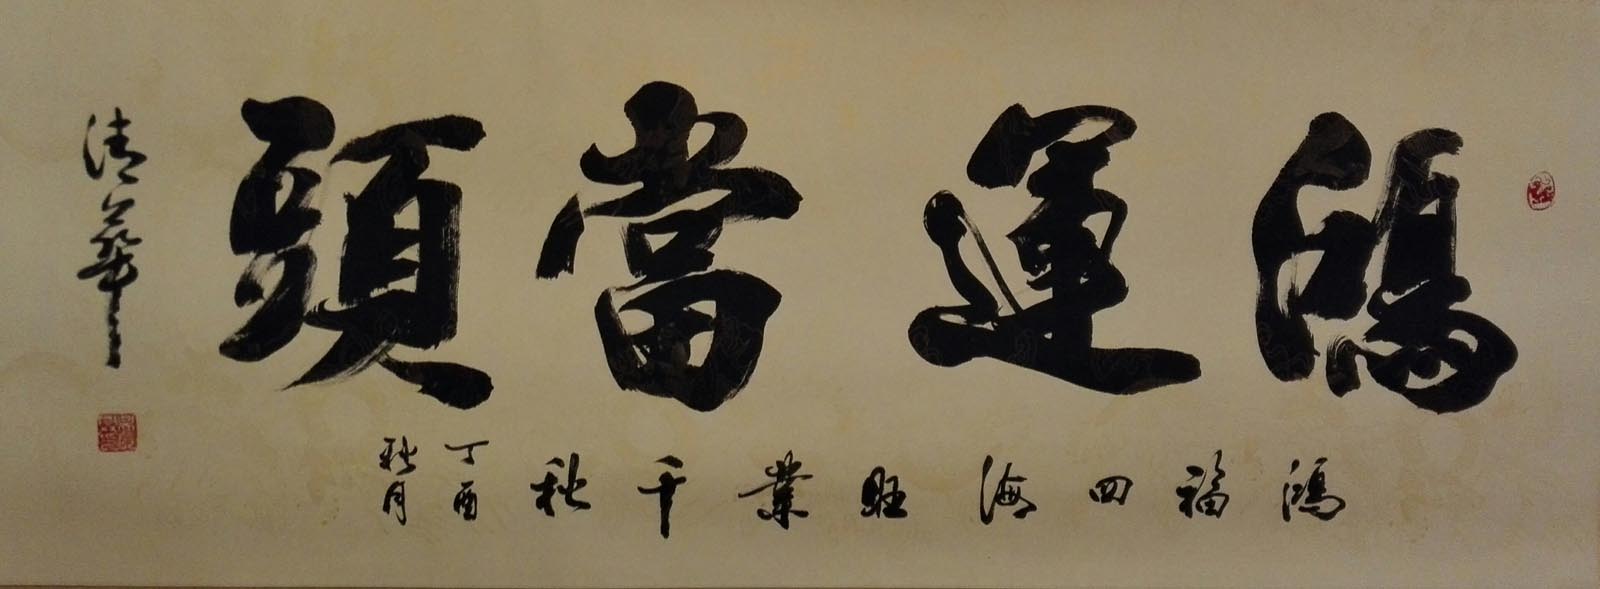 鴻運當頭
鴻福四海旺業千秋
丁酉
秋月
清華